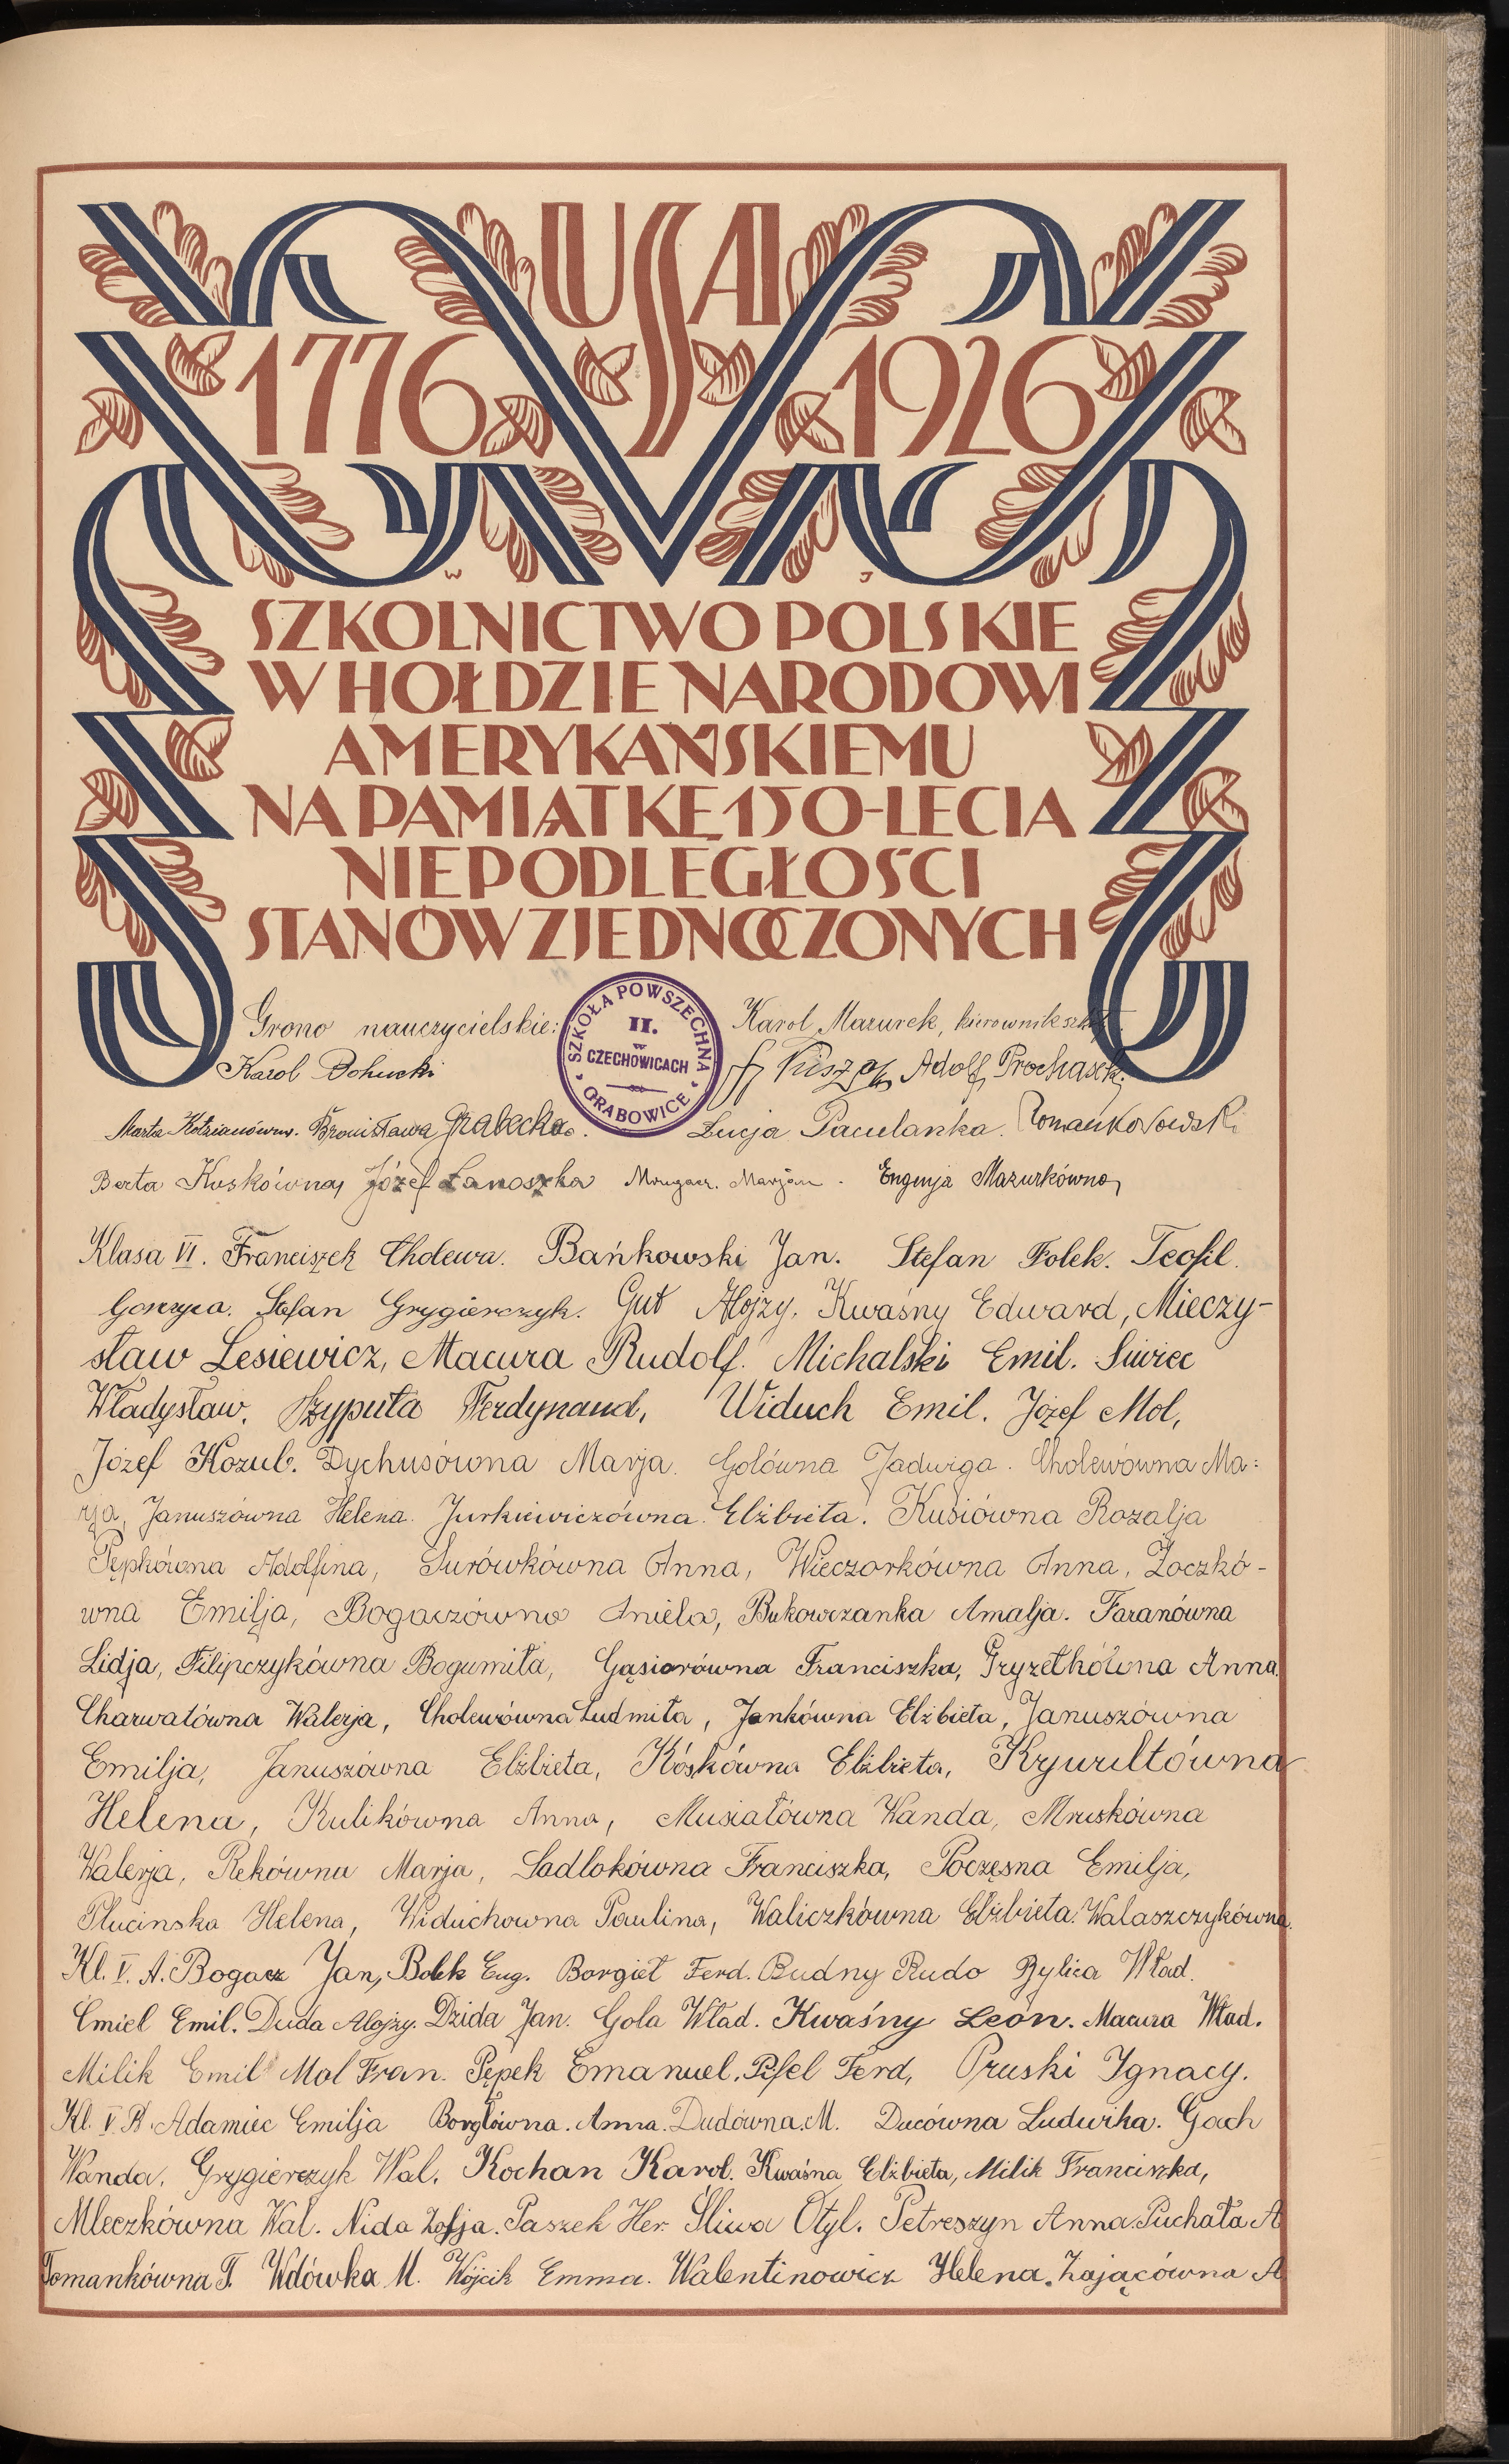 USA
1776 1926
W J
SZKOLNICTWO POLSKIE
W HOŁDZIE NARODOWI
AMERYKAŃSKIEMU
NA PAMIĄTKĘ 150-LECIA
NIEPODLEGŁOŚCI
STANÓW ZJEDNOCZONYCH
SZKOŁA POWSZECHNA
II.
w
CZECHOWICACH
GRABOWICE
Grono nauczycielskie: Karol Mazurek, kierownik szkoły
Karol Adolf Prochasek
Marta Bronisława Grabecka. Łucja Paculanka.
Berta Kuskówna, Józef Łanoszka Marjan. Eugenja Mazurkówna,
Klasa VI. Franciszek Cholewa. Bańkowski Jan. Stefan Folek. Teofil.
Gonzyca. Stefan Grygierczyk. Gut Alojzy. Kwaśny Edward, Mieczy-
sław Lesiewicz, Macura Rudolf. Michalski Emil. Siwiec
Władysław. Szypuła Ferdynand, Widuch Emil. Józef Mol,
Józef Kozub. Dychusówna Marja. Golówna Jadwiga. Cholewówna Ma:
rja, Januszówna Helena. Jurkiewiczówna Elżbieta. Kusiówna Rozalja
Pępkówna Adolfina, Surówkówna Anna, Wieczorkówna Anna, Zoczkó-
wna Emilja, Bogaczówna Aniela, Bukowczanka Amalja. Faranówna
Lidja, Filipczykówna Bogumiła, Gąsiorówna Franciszka, Gryzełkówna Anna.
Charwatówna Walerja, Cholewówna Ludmiła, Jankówna Elżbieta, Januszówna
Emilja, Januszówna Elżbieta, Kóskówna Elżbieta, Krywultówna
Helena, Kulikówna Anna, Musiałówna Wanda, Mruskówna
Walerja, Rekówna Marja, Sadlokówna Franciszka, Poczęsna Emilja,
Plucinska Helena, Widuchowna Paulina, Waliczkówna Elżbieta. Walaszczykówna.
Kl. V. A. Bogacz Jan, Bolek Eug. Borgieł Ferd. Budny Rudo Bylica Wład.
Cmiel Emil. Duda Alojzy. Dzida Jan. Gola Wład. Kwaśny Leon. Macura Wład.
Milik Emil Mol Fran. Pępek Emanuel. Ferd, Pruski Ignacy.
Kl. V. B. Adamiec Emilja Borglówna. Anna. Dudówna. M. Ducówna Ludwika. Gach
Wanda. Grygierczyk Wal. Kochan Karol. Kwaśna Elżbieta, Milik Franciszka,
Mleczkówna Wal. Nida Zofja. Paszek Her. Śliwa Otyl. Petreszyn Anna. Puchała A
Tomankówna T. Wdówka M. Wójcik Emma. Walentinowicz Helena. Zającówna A